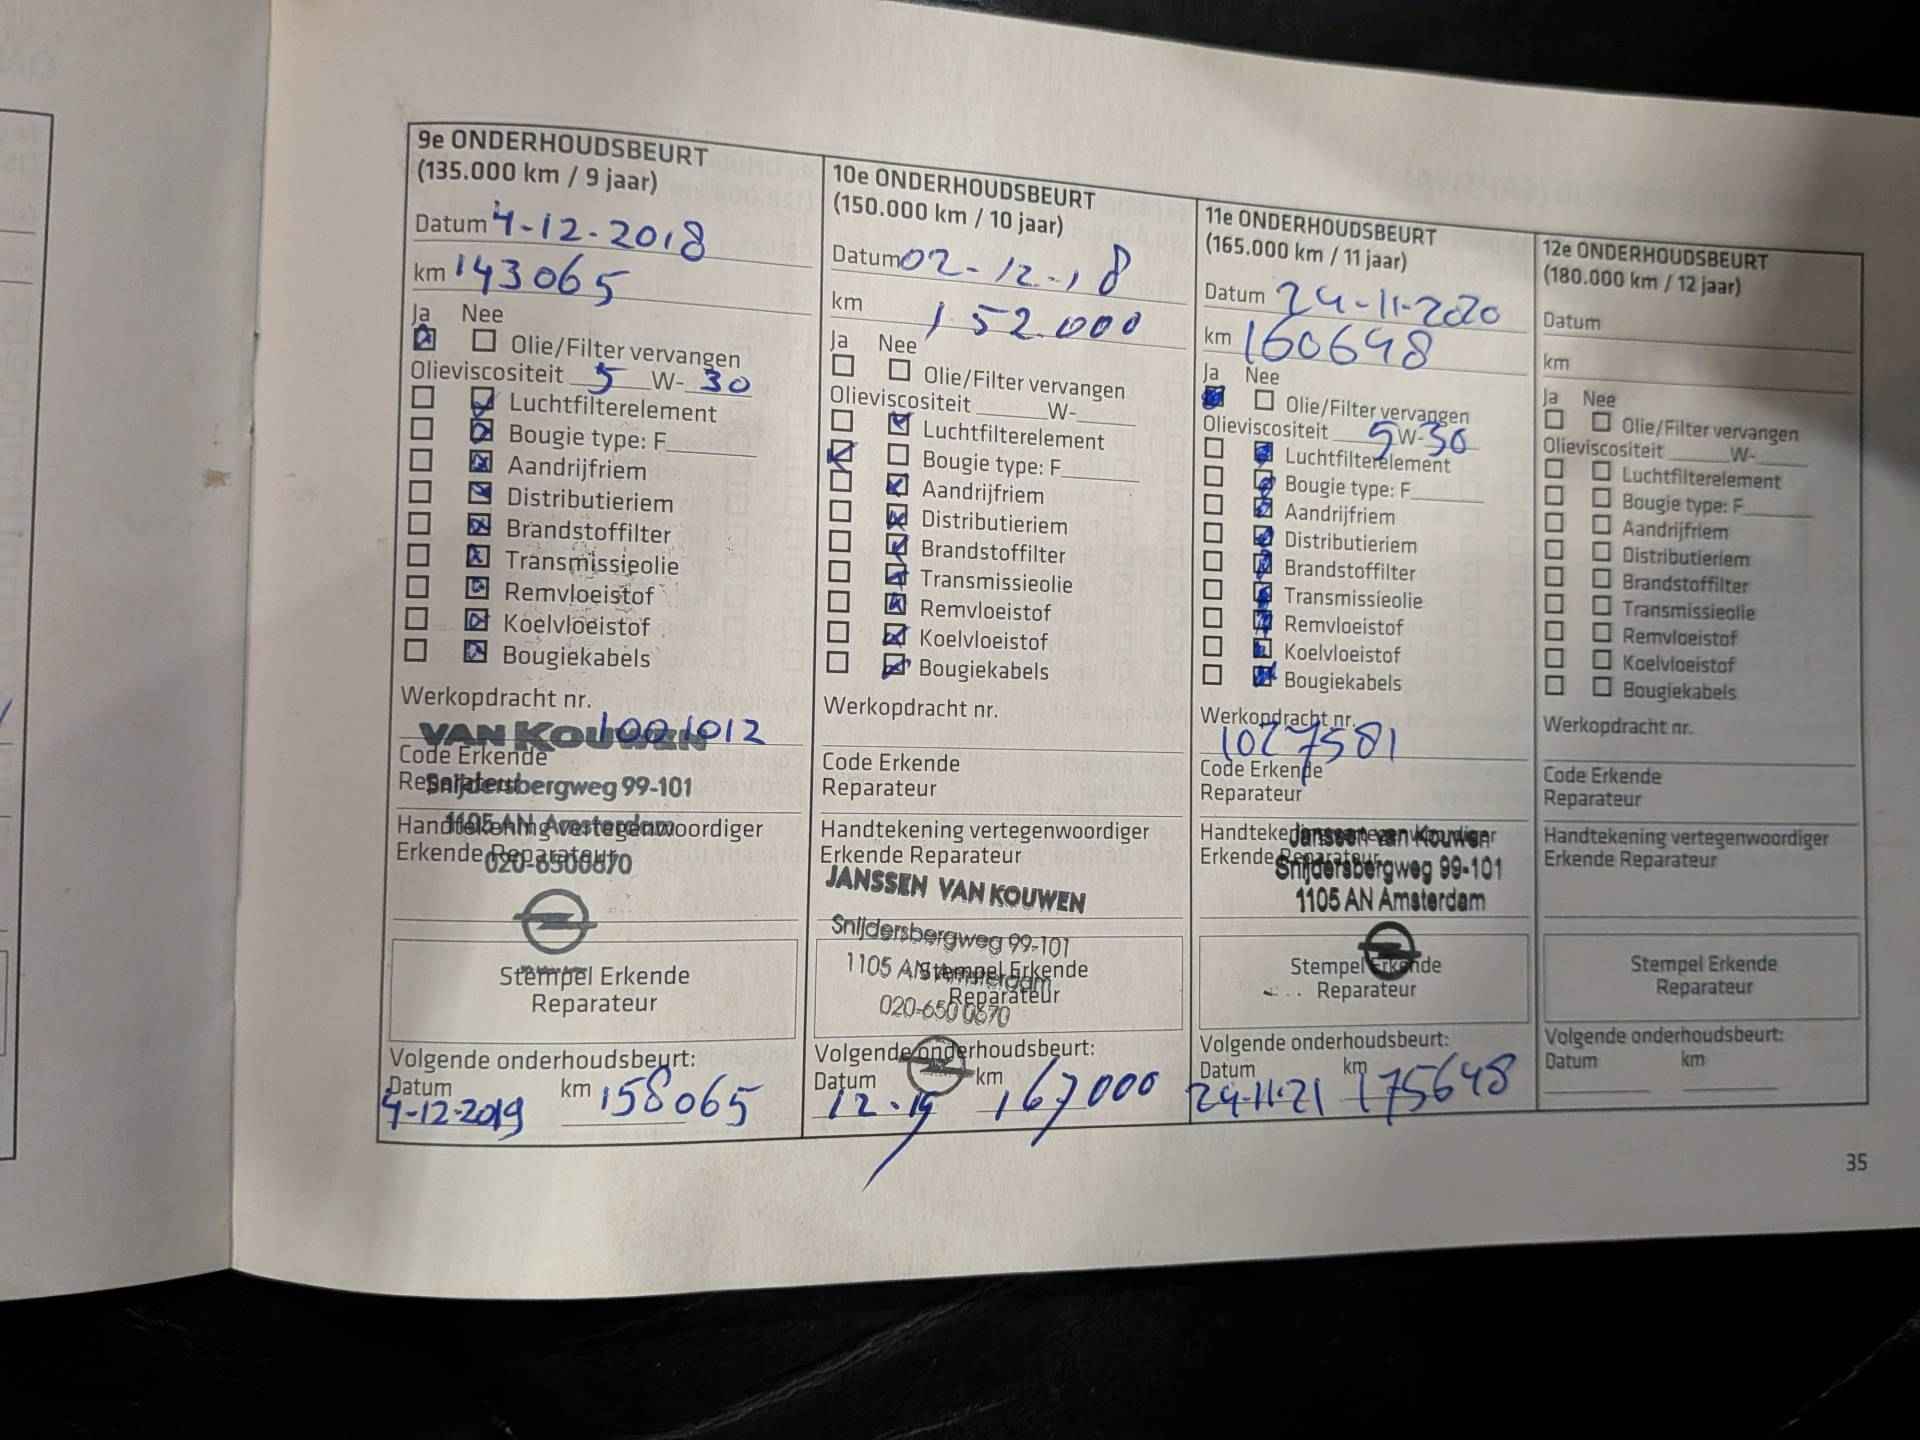 9e ONDERHOUDSBEURT
(135.000 km / 9 jaar)
Datum 4-12-2018
km 143065
Ja Nee
Olie/Filter vervangen
Olieviscositeit 5 W- 30
Luchtfilterelement
Bougie type: F
Aandrijfriem
Distributieriem
Brandstoffilter
Transmissieolie
Remvloeistof
Koelvloeistof
Bougiekabels
Werkopdracht nr.
1001012
VAN KOUWEN
Code Erkende
Reparateur
Snijdersbergweg 99-101
1105 AN Amsterdam
Handtekening vertegenwoordiger
Erkende Reparateur
020-6500670
Stempel Erkende
Reparateur
Volgende onderhoudsbeurt:
Datum km
4-12-2019 158065
10e ONDERHOUDSBEURT
(150.000 km / 10 jaar)
Datum 02-12-18
km 152.000
Ja Nee
Olie/Filter vervangen
Olieviscositeit W-
Luchtfilterelement
Bougie type: F
Aandrijfriem
Distributieriem
Brandstoffilter
Transmissieolie
Remvloeistof
Koelvloeistof
Bougiekabels
Werkopdracht nr.
Code Erkende
Reparateur
Handtekening vertegenwoordiger
Erkende Reparateur
JANSSEN VAN KOUWEN
Snijdersbergweg 99-101
1105 AN Amsterdam
020-650 0670
Stempel Erkende
Reparateur
Volgende onderhoudsbeurt:
Datum km
12-19 167000
11e ONDERHOUDSBEURT
(165.000 km / 11 jaar)
Datum 24-11-2020
km 160648
Ja Nee
Olie/Filter vervangen
Olieviscositeit 5 W- 30
Luchtfilterelement
Bougie type: F
Aandrijfriem
Distributieriem
Brandstoffilter
Transmissieolie
Remvloeistof
Koelvloeistof
Bougiekabels
Werkopdracht nr.
1027581
Code Erkende
Reparateur
Handtekening vertegenwoordiger
Erkende Reparateur
Janssen van Kouwen
Snijdersbergweg 99-101
1105 AN Amsterdam
Stempel Erkende
Reparateur
Volgende onderhoudsbeurt:
Datum km
24-11-21 175648
12e ONDERHOUDSBEURT
(180.000 km / 12 jaar)
Datum
km
Ja Nee
Olie/Filter vervangen
Olieviscositeit W-
Luchtfilterelement
Bougie type: F
Aandrijfriem
Distributieriem
Brandstoffilter
Transmissieolie
Remvloeistof
Koelvloeistof
Bougiekabels
Werkopdracht nr.
Code Erkende
Reparateur
Handtekening vertegenwoordiger
Erkende Reparateur
Stempel Erkende
Reparateur
Volgende onderhoudsbeurt:
Datum km
35